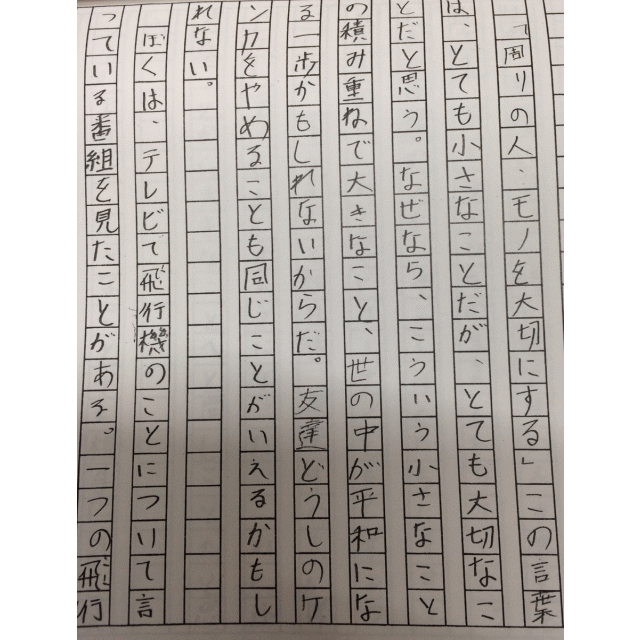 「周りの人、モノを大切にする」この言葉
は、とても小さなことだが、とても大切なこ
とだと思う。なぜなら、こういう小さなこと
の積み重ねで大きなこと、世の中が平和にな
る一歩かもしれないからだ。友達どうしのケ
ンカをやめることも同じことがいえるかもし
れない。
ぼくは、テレビで飛行機のことについて言
っている番組を見たことがある。一つの飛行